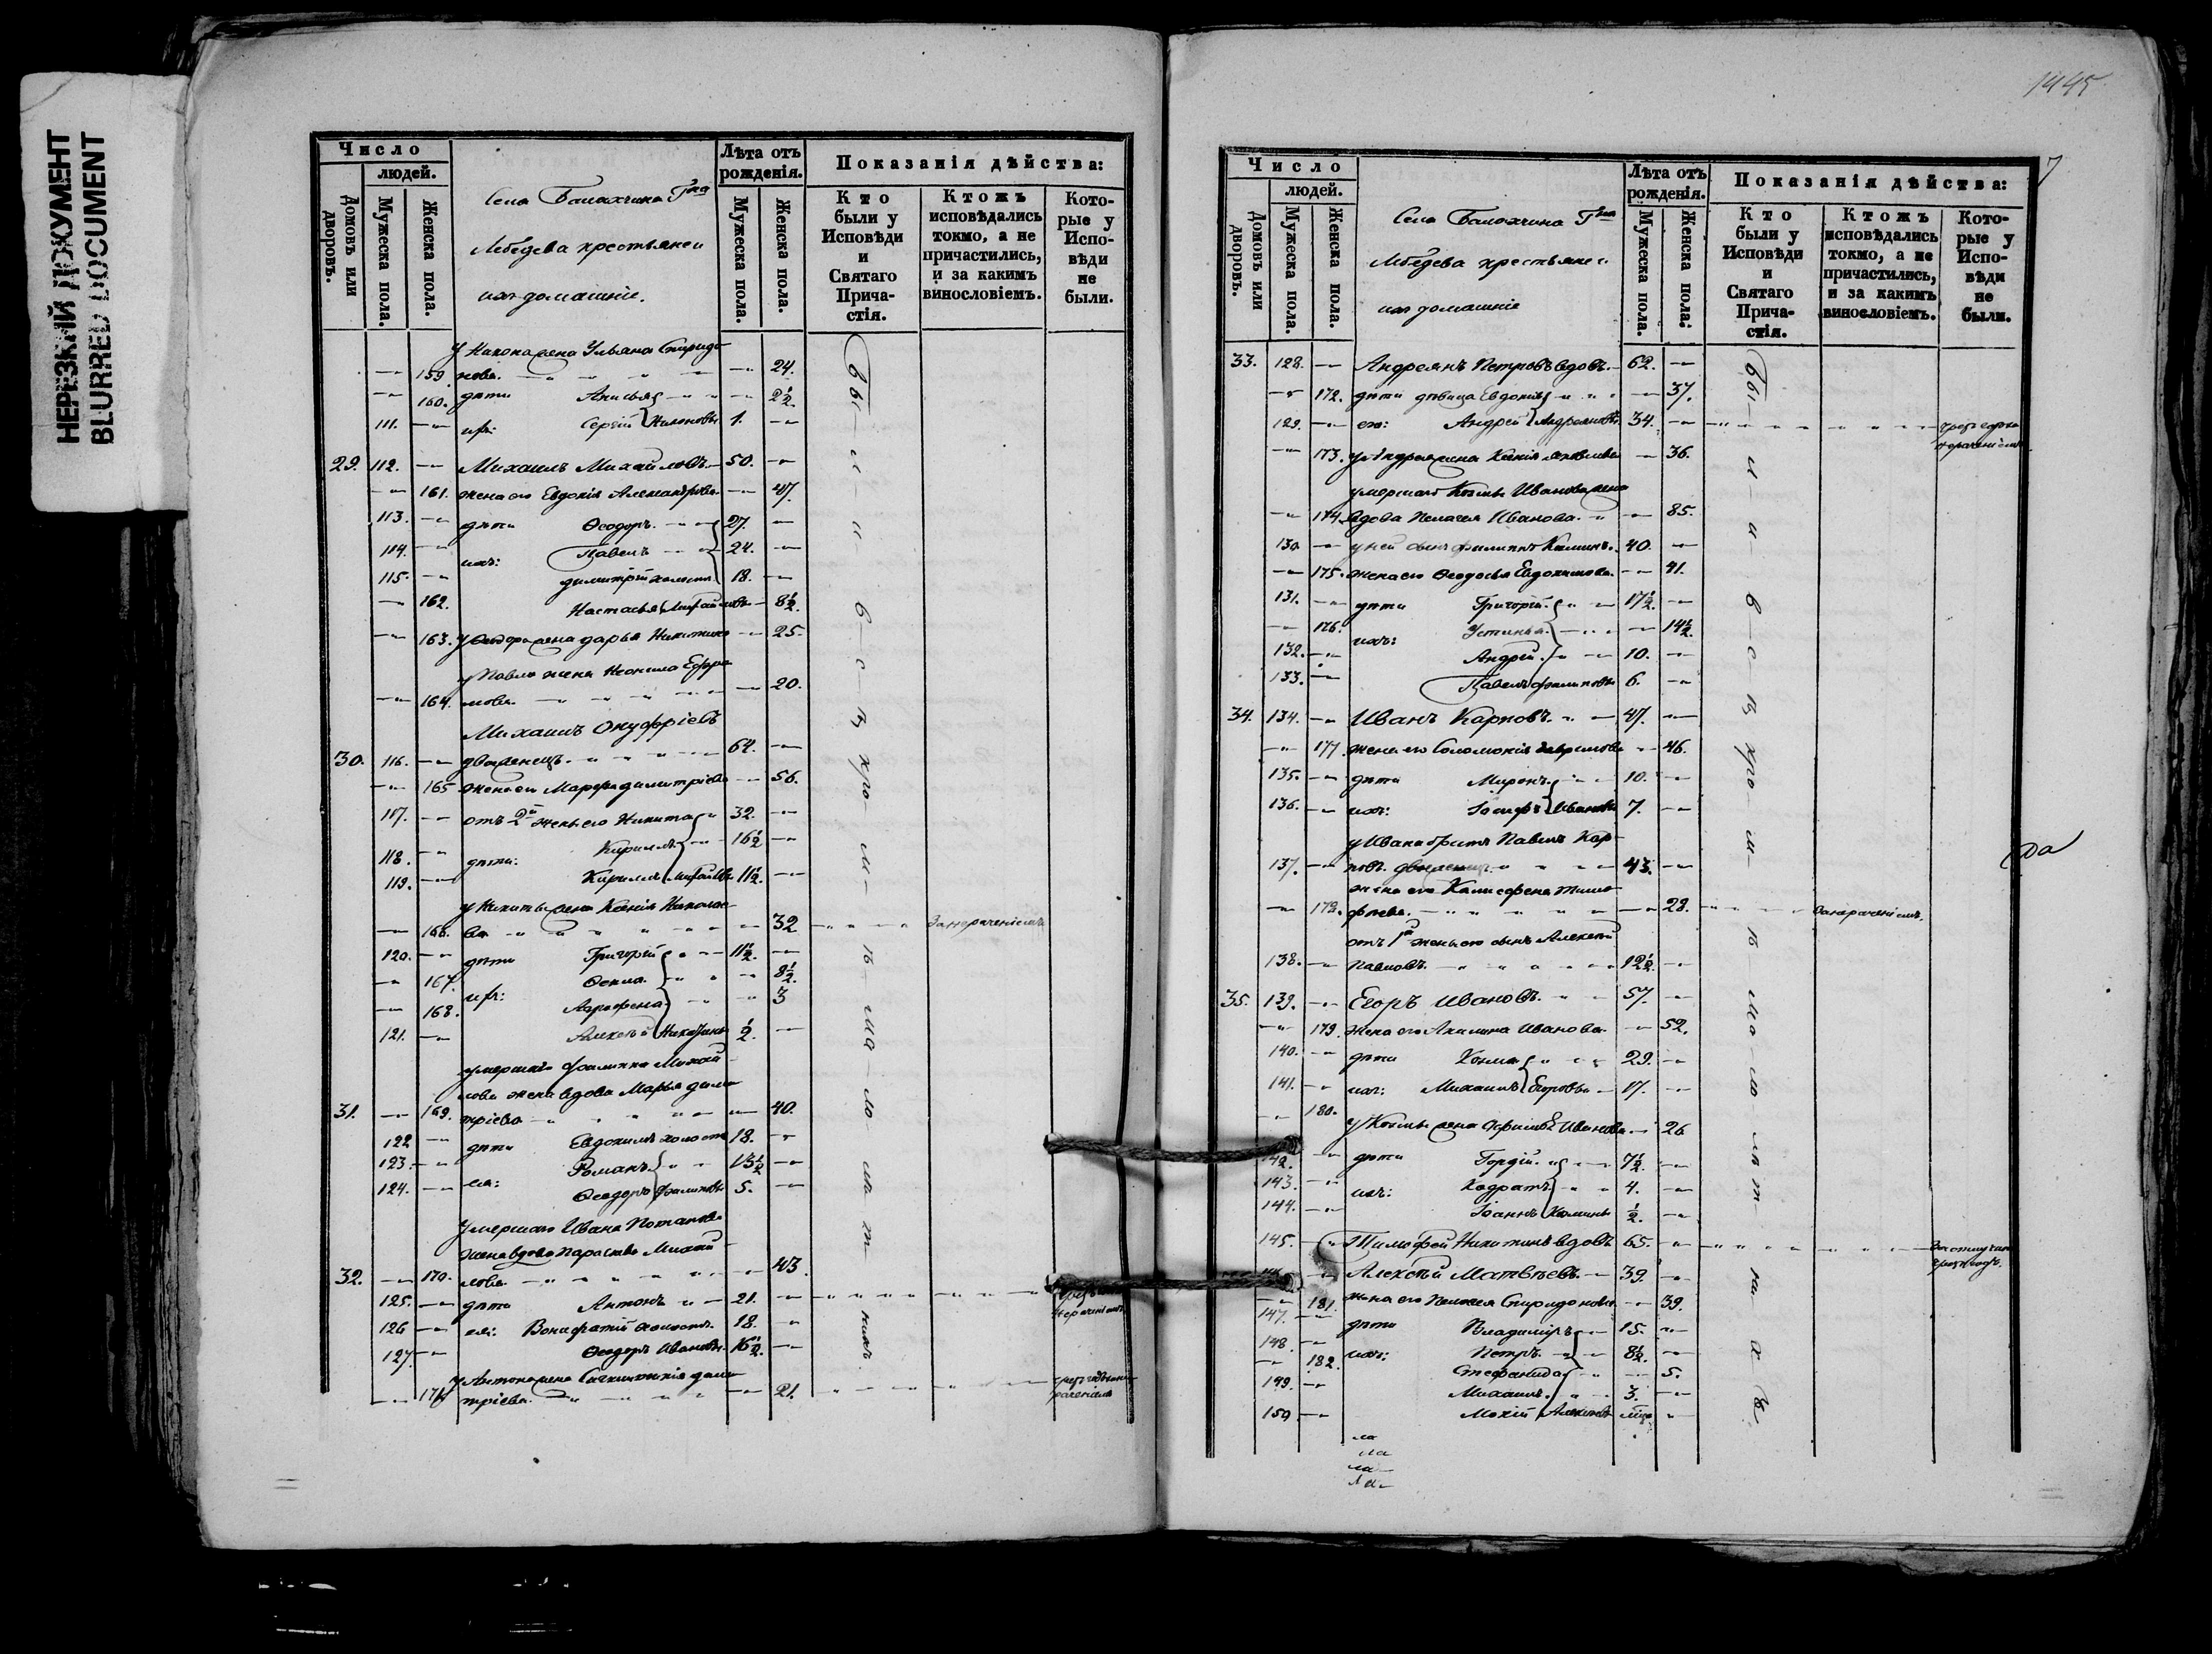 НЕРЕЗКИЙ ДОКУМЕНТ
BLURRED DOCUMENT
Число
людей.
Домовъ или дворовъ.
Мужеска пола.
Женска пола.
Села Балахчина Гна
Лебедева крестьяне и
ихъ домашніе.
Лѣта отъ рожденія.
Мужеска пола.
Женска пола.
Показанія дѣйства:
Кто были у Исповѣди и Святаго Причастія.
Ктожъ исповѣдались токмо, а не причастились, и за какимъ винословіемъ.
Которые у Исповѣди не были.
у Никона жена Ульяна Спиридо
159. нова. 24.
160. дѣти Анисья 2½
111. ихъ: Сергій Никоновы 1.
29. 112. Михаилъ Михайловъ 50.
161. жена его Евдокія Александрова 47.
113. дѣти Ѳеодоръ 27.
114. ихъ: Павелъ 24.
115. Димитрій холостъ 18.
162. Настасья Михайловы 8½.
163. у Ѳеодора жена Дарья Никитина 25.
у Павла жена Неонила Ефре
164. мова 20.
Михаилъ Онуфріевъ
30. 116. двоеженецъ 64.
165 жена его Марфа Димитріева 56.
117. отъ 2й жены его Никита 32.
118. дѣти: Кириллъ 16½
119. Кириллъ Михайловы 11½.
у Никиты жена Ксенія Николае
166. ва 32 за нераченіемъ
120. дѣти Григорій 11½.
167. Ѳекла 8½.
168. ихъ: Агрофена 3
121. Алексѣй Никитины ½.
умершаго Филиппа Михай
лова жена вдова Марья Дими
31. 169. тріева 40.
122 дѣти Евдокимъ холостъ 18.
123 Романъ 13½
124. ея: Ѳеодоръ Филиповы 5.
Умершаго Ивана Потапова
жена вдова Параскева Михай
32. 170. лова 43.
125. дѣти Антонъ 21. нераченіемъ
126 ея: Вонифатій холостъ 18.
127. Ѳеодоръ Ивановы 16½.
у Антона жена Дими
171 тріева 21.
1445
7
Число
людей.
Домовъ или дворовъ.
Мужеска пола.
Женска пола.
Села Балахчина Гна
Лебедева крестьяне и
ихъ домашніе
Лѣта отъ рожденія.
Мужеска пола.
Женска пола.
Показанія дѣйства:
Кто были у Исповѣди и Святаго Причастія.
Ктожъ исповѣдались токмо, а не причастились, и за какимъ винословіемъ.
Которые у Исповѣди не были.
33. 128. Андреянъ Петровъ вдовъ 62.
172. дѣти дѣвица Евдокія 37.
129. его: Андрей Андреяновы 34. нераченіемъ
173. у Андрея жена Ксенія Яковлева 36.
умершаго Козмы Иванова жена
174. вдова Пелагея Иванова 85.
130. у ней сынъ Филиппъ Козминъ 40.
175. жена его Ѳеодосья Евдокимова 41.
131. дѣти Григорій 17½.
176. ихъ: Устинья 14½.
132. Андрей 10.
133. Павелъ Филиповы 6.
34. 134. Иванъ Карповъ 47.
177. жена его Соломонія Гаврилова 46.
135. дѣти Миронъ 10.
136. ихъ: Іосифъ Ивановы 7.
у Ивана братъ Павелъ Кар
137. повъ двоеженецъ 43.
жена его Тимо
178. феева 28. за нераченіемъ
отъ 1й жены его сынъ Алексей
138. Павловъ 12½.
35. 139. Егоръ Ивановъ 57.
179. жена его Акилина Иванова 52.
140. дѣти Козма 29.
141. ихъ: Михаилъ Егоровы 17.
180. у Козмы жена Иванова 26
142. дѣти Гордій 7½.
143. ихъ: Кодратъ 4.
144. Іоаннъ Козмины ½.
145. Тимофей Никитинъ вдовъ 65. за отлучкою
Алексѣй Матвѣевъ 39.
181. жена его Пелагея Спиридонова 39.
147. дѣти Владиміръ 15.
148. ихъ: Петръ 8½.
182. Степанида 5.
149. Михаилъ 3.
150 Мокій